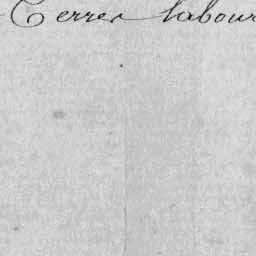 Terres labour